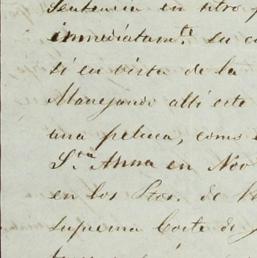 Sentencia en otro
inmediatamte. su
si en vista de la
Manejando alli este
una peluca, como
Sta. Anna en Nov
en los Stos. de
suprema Corte de